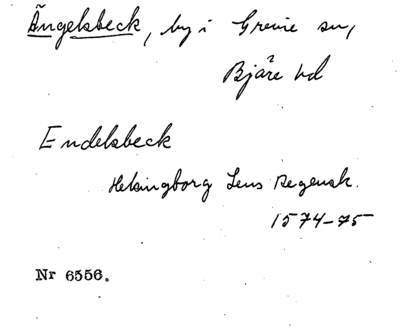 Ängelsbeck, by i Grevie sn,
Bjäre hd
Endelsbeck
Helsingborg Lens Regensk.
1574-75
Nr 6556.